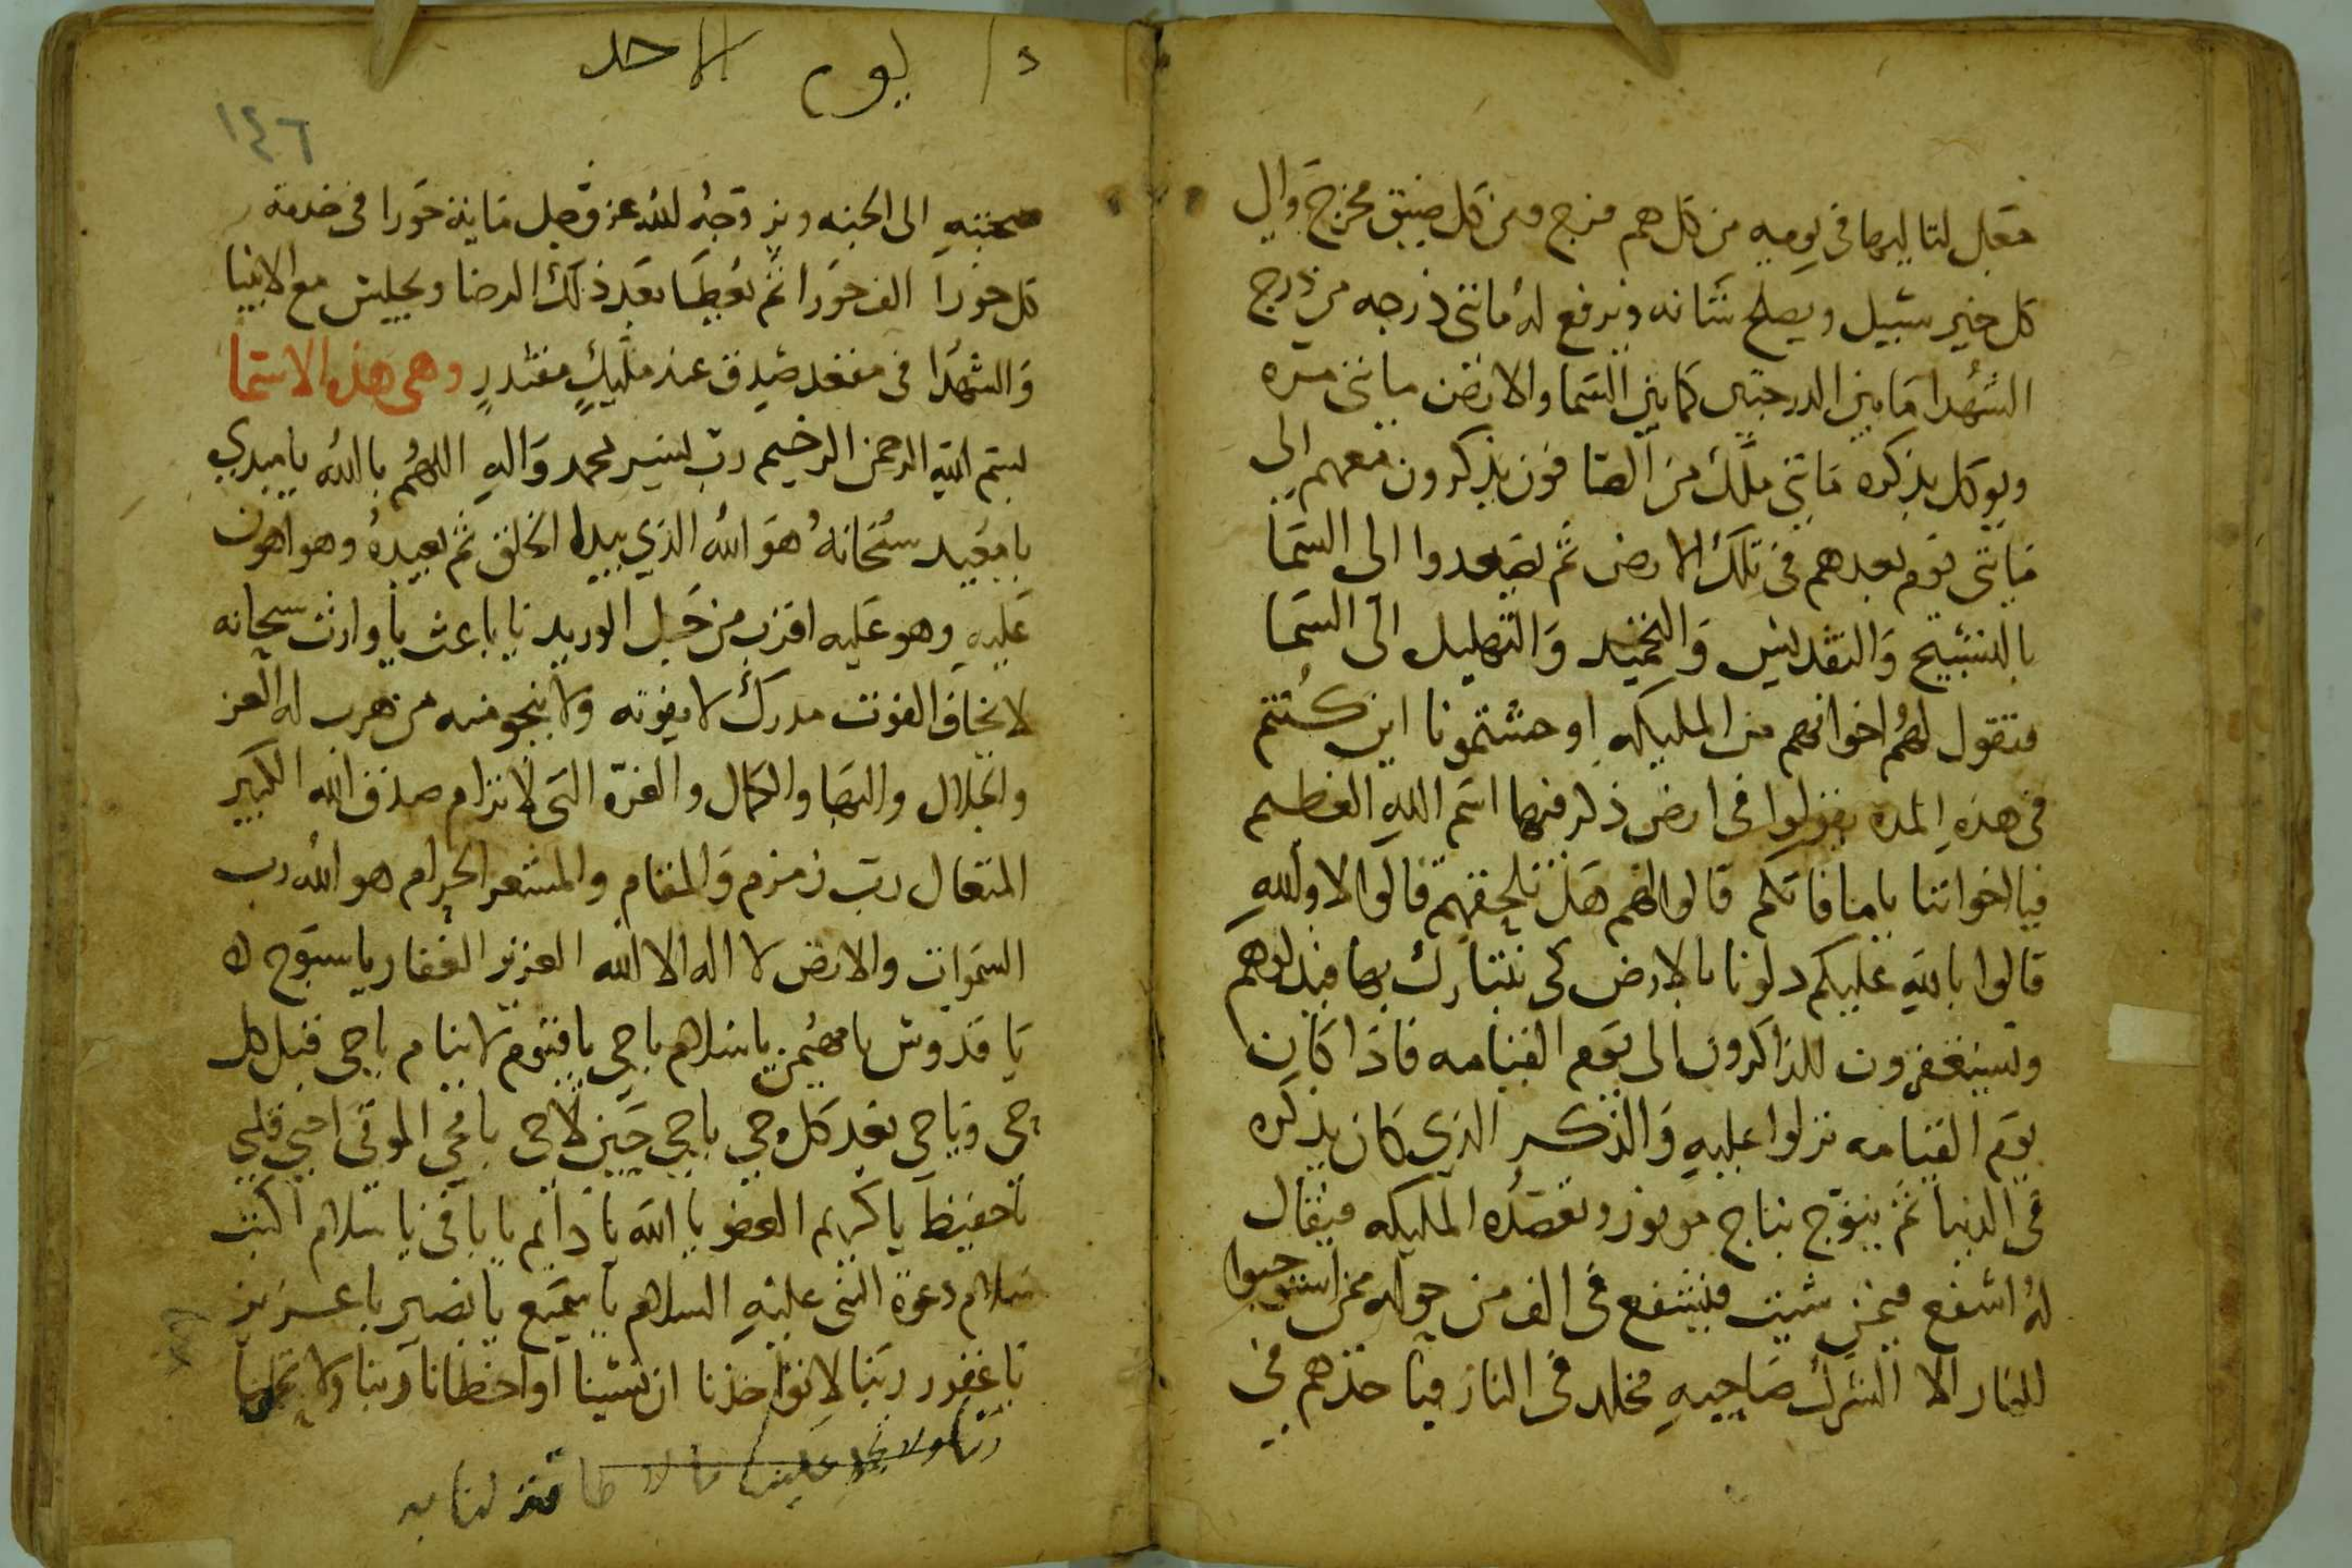 مقبل لتاليها في يوميه من كل هم فرج ومن كل ضيق مخرج والى
كل خير سبيل ويصلح شانه ويرفع له مائتى درجه من درج
الشهدا مابين الدرجتين كمابين السما والارض مائتى مره
ويوكل بذكره مائتى ملك من الصافون يذكرون معهم الى
مائتى يوم بعدهم في تلك الارض ثم يصعدوا الى السما
بالتسبيح والتقديس والتحميد والتهليل الى السما
فتقول لهم اخوانهم من المليكه اوحشتمونا اين كنتم
في هذه المده يقولوا في ارض ذكر فيها اسم الله العظيم
فيا اخواننا ياما فاتكم قالوا لهم هل نلحقهم قالوا لا والله
قالوا بالله عليكم دلونا بالارض كى نتبارك بها فيدلوهم
وتستغفرون للذاكرون الى يوم القيامه فاذا كان
يوم القيامه نزلوا عليه والذكر الذي كان يذكره
في الدنيا ثم يتوج بتاج من نور وتقصده المليكه فيقال
له اشفع فيمن شيت فيشفع في الف من حوله ممن استوجبوا
للنار الا الشرك صاحبه مخلد في النار فياخذهم في
د / ليوم الاحد
١٤٦
صحبته الى الجنه ويزوجه الله عز وجل ماية حورا في خدمة
كل حورا الف حورا ثم يعطا بعد ذلك الرضا ويجليس مع الانبيا
والشهدا في مقعد صدق عند مليك مقتدر وهى هذه الاسما
بسم الله الرحمن الرحيم رب يسير لمحمد واله اللهم يا الله يا مبدي
يا معيد سبحانه هو الله الذي يبدا الخلق ثم يعيده وهو اهون
عليه وهو عليه اقرب من حبل الوريد يا باعث يا وارث سبحانه
لا يخاف الفوت مدرك لا يفوته ولا ينجو منه من هرب له العز
والجلال والبها والكمال والعزة التى لا ترام صدق الله الكبير
المتعال رب زمزم والمقام والمشعر الحرام هو الله رب
السموات والارض لا اله الا الله العزيز الغفار يا سبوح
يا قدوس يا مهيمن يا سلام يا حي يا قيوم لا ينام يا حى قبل كل
حى ويا حى بعد كل حي يا حي حين لا حى يا محي الموتى احيى قلبى
يا حفيظ يا كريم العفو يا الله يا دائم يا باقى يا سلام اكتب
سلام دعوة النبى عليه السلام يا سميع يا بصير يا عزيز
يا غفور ربنا لا تواخذنا ان نسينا او اخطانا ربنا ولا تحملنا
ربنا ولا تحمل علينا ما لا طاقة لنا به